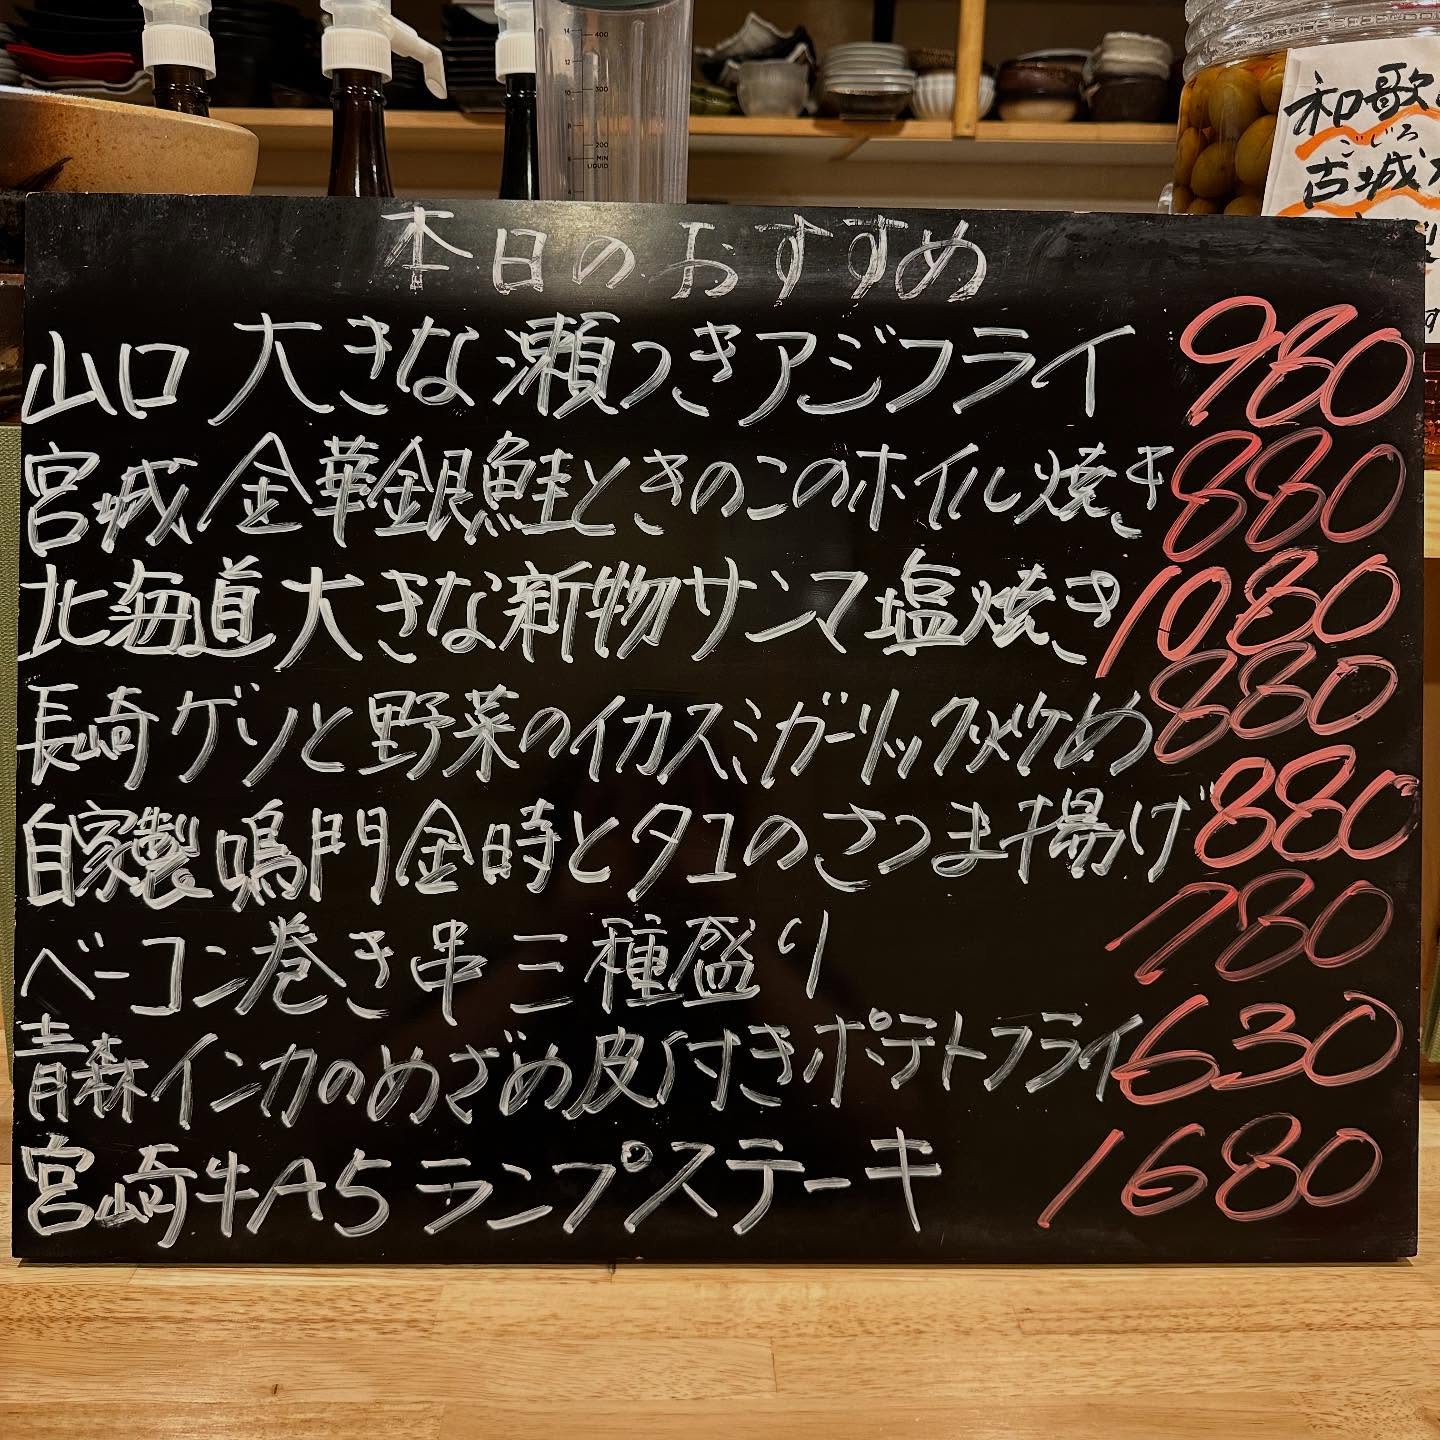 本日のおすすめ
山口 大きな瀬つきアジフライ 980
宮城 金華銀鮭ときのこのホイル焼き 880
北海道大きな新物サンマ塩焼き 1080
長崎ゲソと野菜のイカスミガーリック炒め 880
自家製 鳴門金時とタコのさつま揚げ 880
ベーコン巻き串三種盛り 780
青森インカのめざめ皮付きポテトフライ 630
宮崎牛A5ランプステーキ 1680
和歌
ごじろ
古城
14
400
12
300
200
MIN
LIQUID